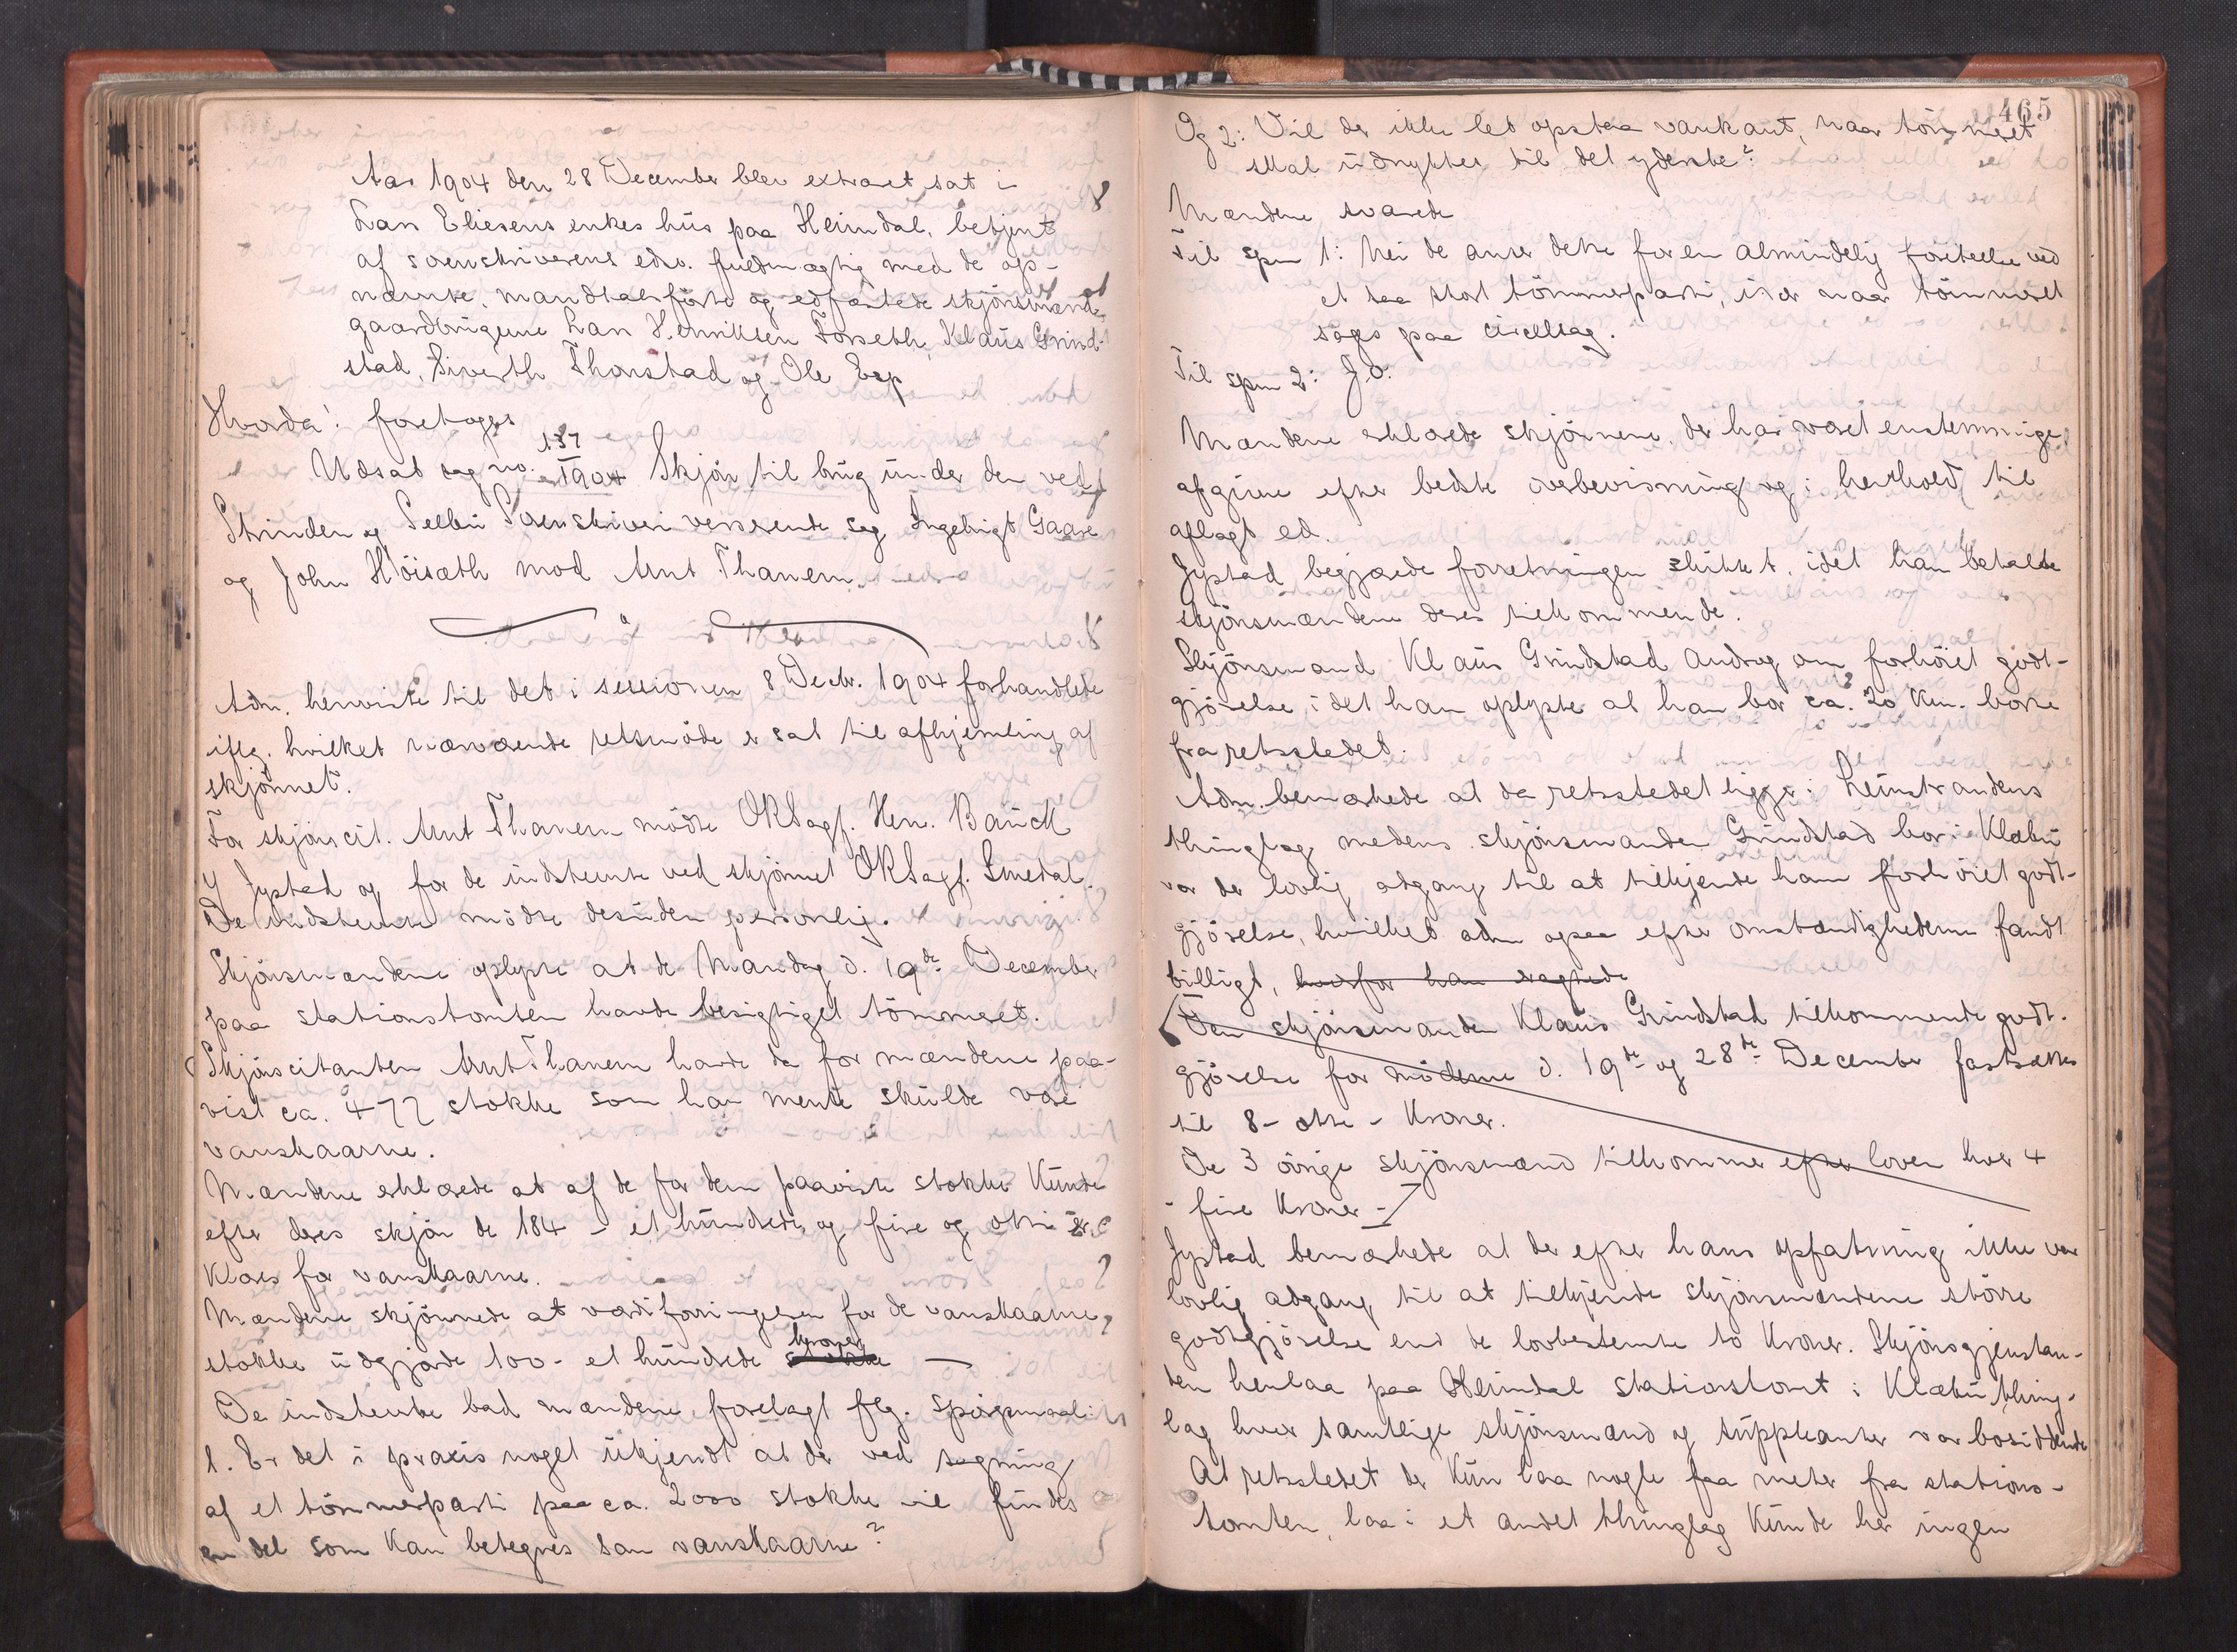 Aar 1904 den 28 December blev extraret sat i
Lars Eliesens enkes hüs paa Heimdal, betjent
af sorenskriverens edsv. fuldmægtig med de op-
nævnte, mandtalsførte og edfæstede skjønsmænd
gaardbrügerne Lars Henriksen Forseth, Klaüs Grind-
stad, Siverth Thonstad og Ole Esp
Hvorda! foretoges
Udsat sag no. 137/1904 Skjøn til brüg ünder den ved
Strinden og Selbü Sorenskriveri verserende sag Ingebrigt Gaare
og John Høiseth mod Arnt Thanem.
Adm. henviste til det i sessionen 8 Decbr. 1904 forhandlede
iflg. hvilket nærværende retsmøde er sat til afhjemling af
skjønnet.
For skjønscit. Arnt Thanem mødte ORSagf. Hen. Baück
v/ Jystad og for de indstevnte ved skjønnet ORSagf. Smedal.
De indstevnte mødte desüden personlig.
Skjønsmændene oplyste at de Mandag d. 19de December
paa stationstomten havde besigtiget tømmeret.
Skjønscitanten Arnt Thanem havde da for mændene paa-
vist ca. 477 stokke som han mente skülde være
vanskaarne.
Mændene erklærede at af de for dem paaviste stokke Künde
efter deres skjøn de 184 - et hündrede og fire og otti er-
klæres for vanskaarne.
Mændene skjønnede at værdiforringelsen for de vanskaarne
stokke üdgjorde 100 - et hündrede stokke kroner —
De indstevnte bad mændene forelagt flg. spørgsmaal:
1. Er det i praxis noget ükjendt at der ved sagning
af et tømmerparti paa ca. 2000 stokke vil findes
en del som Kan betegnes som vanskaarne?
465
Og 2: Vil der ikke let opstaa vankant, naar tømmeret
skal üdnyttes til det yderste?
Mændene svarede
Til spm 1: Nei de anser dette for en almindelig foreteelse ved
et saa stort tømmerparti, især naar tømmeret
sages paa cirkelsag.
Til spm 2: Jo.
Mændene erklærede skjønnene, der har været enstemmige,
afgivne efter bedste overbevisning og i henhold til
aflagt ed.
Jystad begjærede forretningen slüttet, idet han betalte
skjønsmændene deres tilkommende.
Skjønsmand Klaüs Grindstad androg om forhøiet godt-
gjørelse, idet han oplyste at han bor ca. 20 Km. borte
fra retsstedet.
Adm. bemærkede at da retsstedet ligger i Leinstrandens
thinglag medens skjønsmanden Grindstad bor i Klæbü
var der lovlig adgang til at tilkjende ham forhøiet godt-
gjørelse, hvilket adm ogsaa efter omstændighederne fandt
billigt, hvorfor han
Den skjønsmanden Klaüs Grindstad tilkommende godt-
gjørelse for møderne d. 19de og 28de December fastsættes
til 8 - otte - Kroner.
De 3 øvrige skjønsmænd tilkommer efter loven hver 4
- fire Kroner -
Jystad bemærkede at der efter hans opfatning ikke var
lovlig adgang til at tilkjende skjønsmændene større
godtgjørelse end de lovbestemte to Kroner. Skjønsgjenstan-
den henlaa paa Heimdal stationstomt i Klæbü thing-
lag hvor samtlige skjønsmænd og süppleanter var bosiddende
At retsstedet der Kün laa nogle faa meter fra stations-
tomten, laa i et andet thinglag Künde her ingen